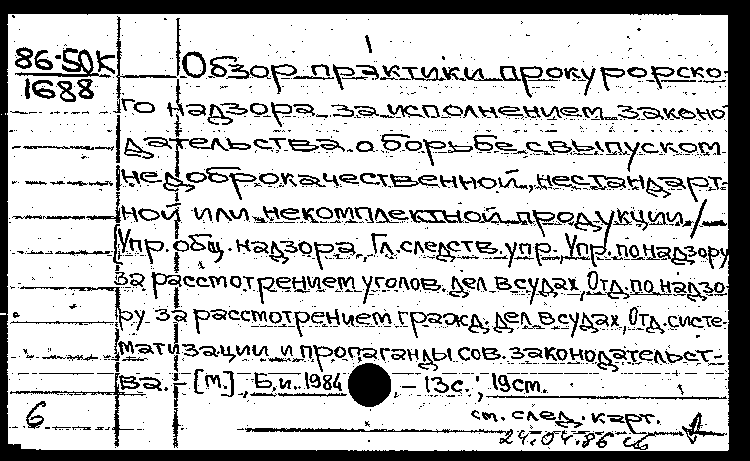 86-50К
1688
Обзор практики прокурорско-
го надзора за исполнением законо
дательства о борьбе с выпуском
недоброкачественной, нестандарт-
ной или некомплектной продукции /
Упр. общ. надзора, Гл. следств. упр., Упр. по надзору
за рассмотрением уголов. дел в судах, Отд. по надзо-
ру за рассмотрением гражд. дел в судах, Отд. систе-
матизации и пропаганды сов. законодательст-
ва. – [М.], Б.и. 1984, – 13с.; 19см.
6
см. след. карт.
24.04.86